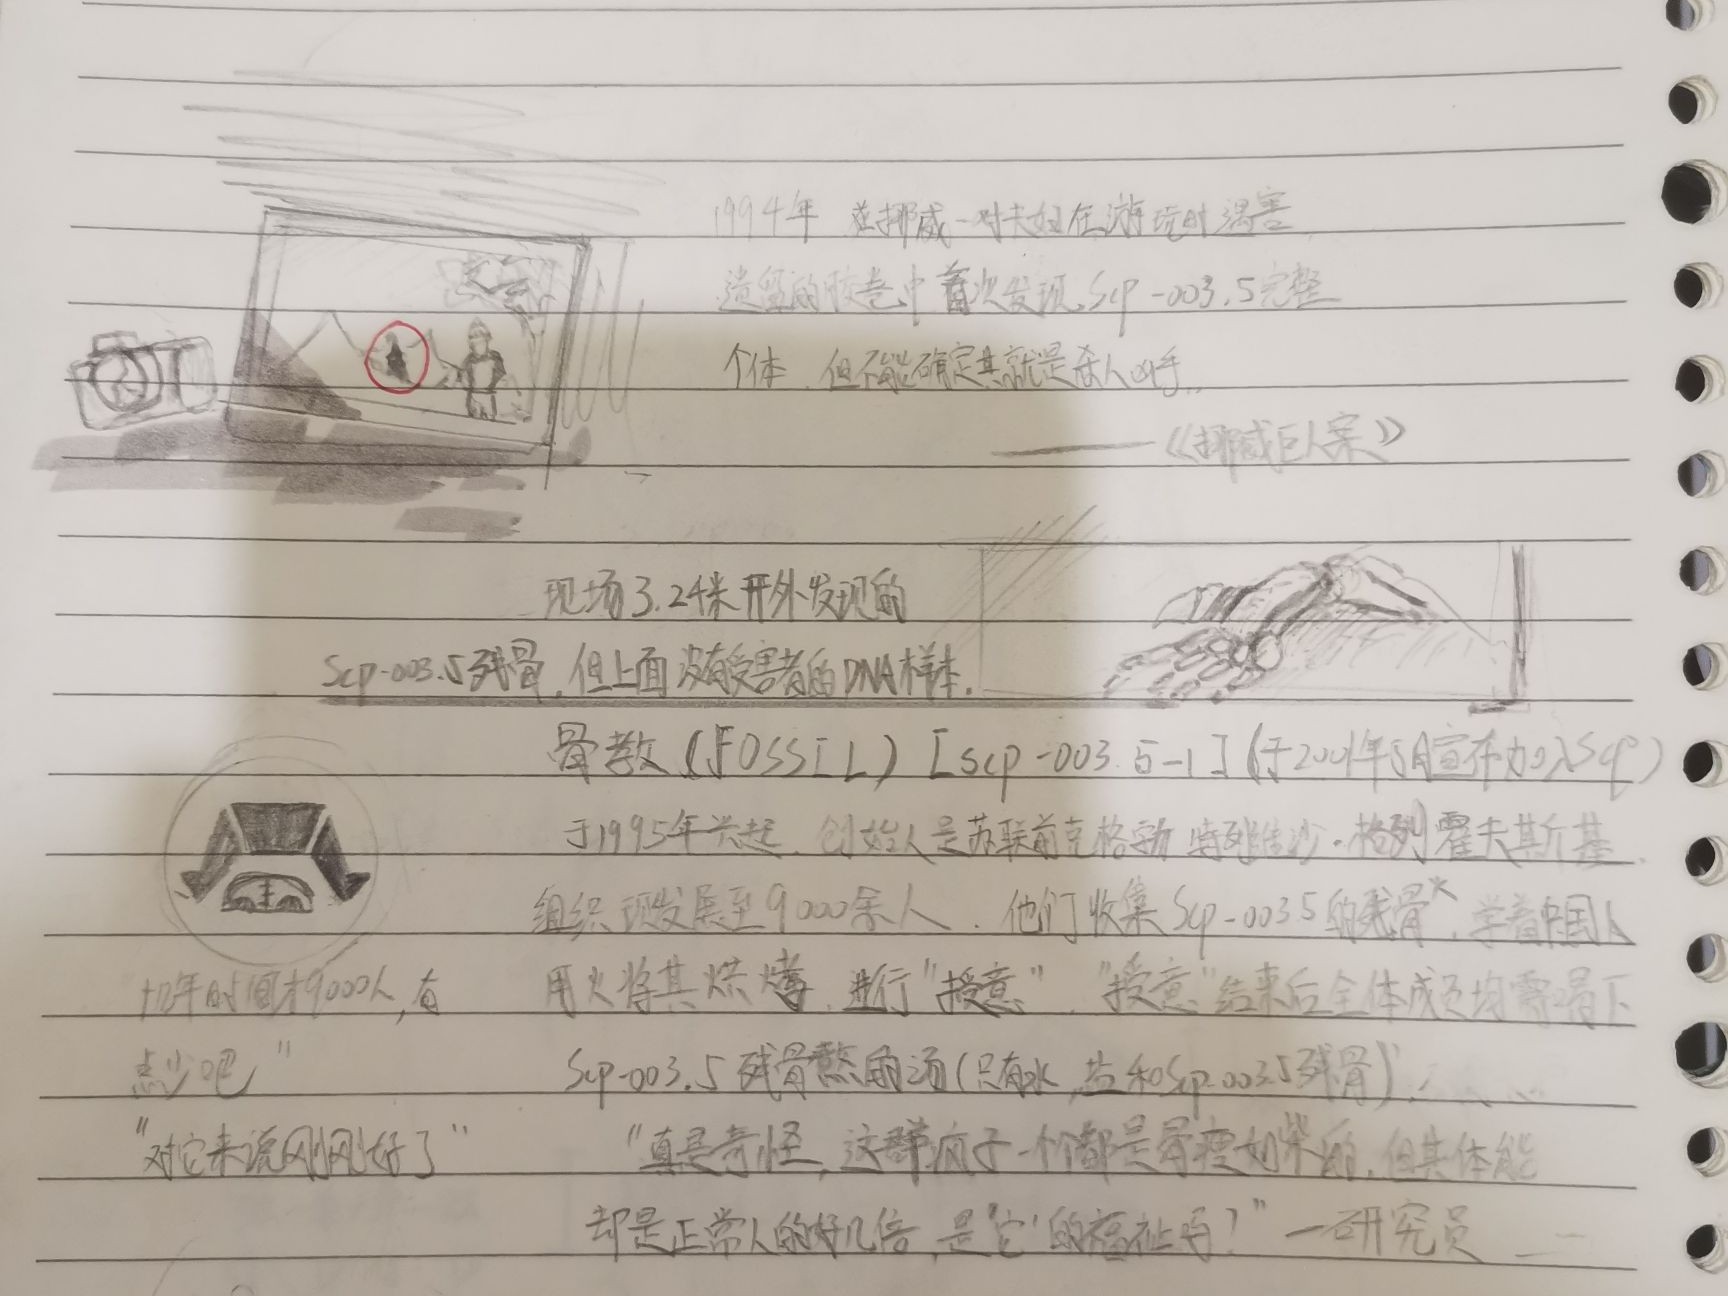 1994年 在挪威一对夫妇在游玩时遇害
遗留的胶卷中首次发现Scp-003.5完整
个体，但不能确定其就是杀人凶手。
——《挪威巨人案》
现场3.24米开外发现的
Scp-003.5残骨，但上面没有受害者的DNA样本。
骨教（FOSSIL）[Scp-003.5-1]（于2001年5月宣布加入Scp）
于1995年兴起，创始人是苏联前克格勃 ·格列霍夫斯基
组织现发展至9000余人，他们收集Scp-003.5的残骨，学着中国人
用火将其烘烤，进行"授意"，"授意"结束后全体成员均需喝下
Scp-003.5残骨熬的汤（只有水，盐和Scp-003.5残骨）
"真是奇怪，这群疯子一个个都是骨瘦如柴的，但其体能
却是正常人的好几倍，是'它'的福祉吗？"一研究员
十几年时间才9000人，有
点少吧"
"对它来说刚刚好了"